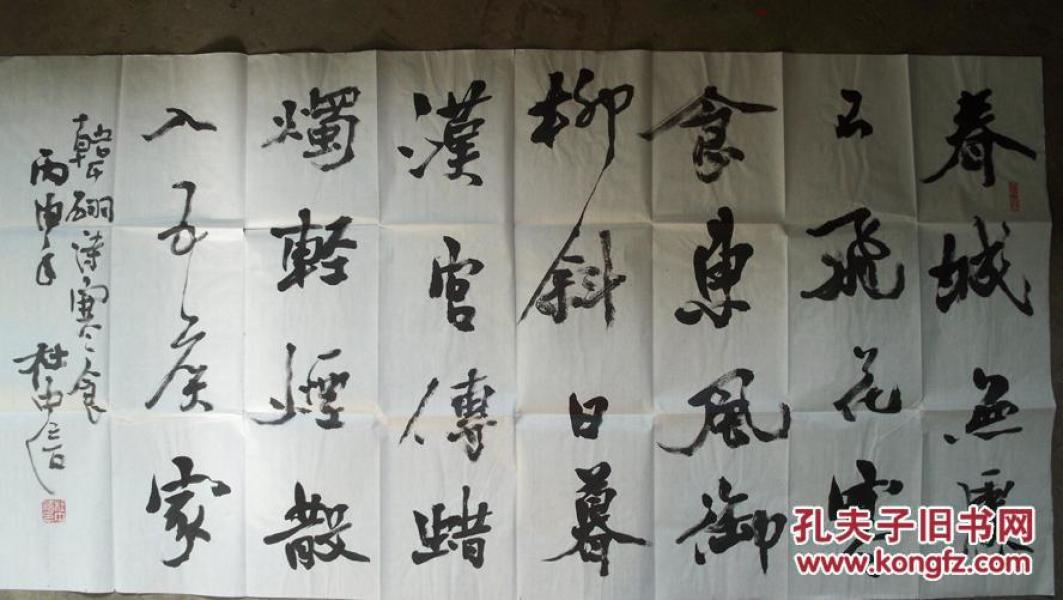 春城無處
不飛花寒
食東風御
柳斜日暮
漢宮傳蜡
燭輕煙散
入五侯家
韓翃詩寒食
丙申年 杜中信
孔夫子旧书网
www.kongfz.com